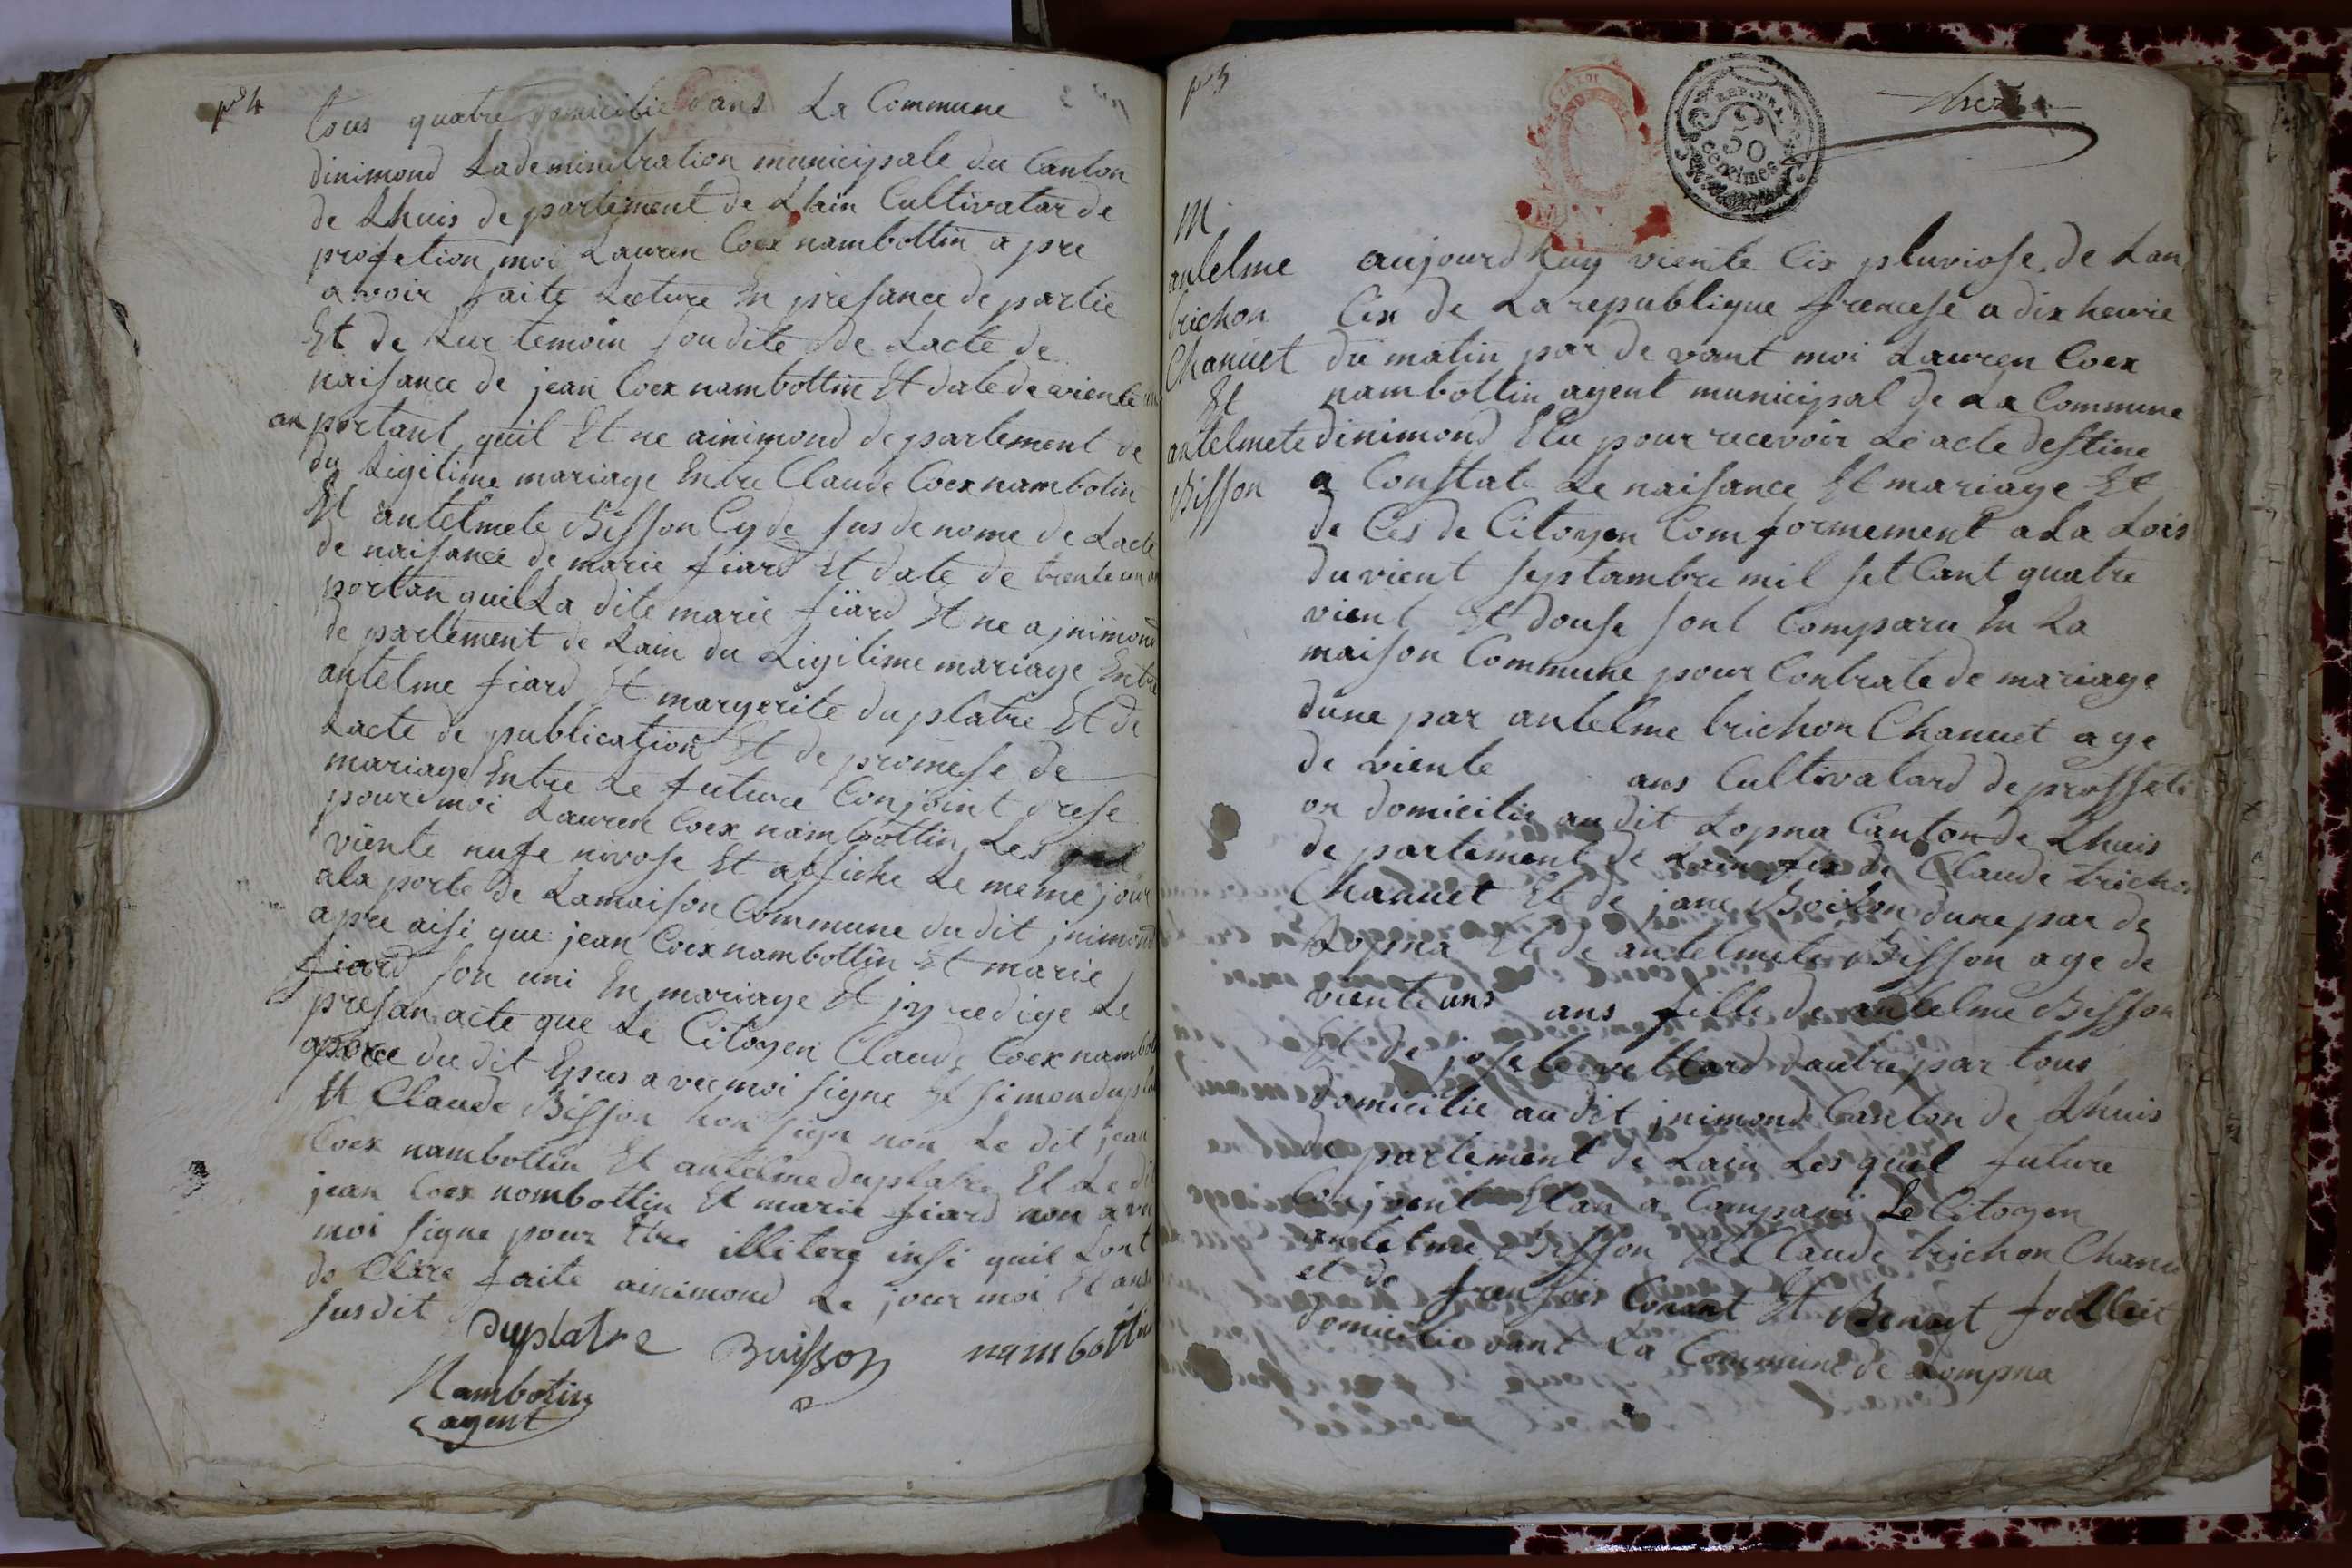 p^e 4
tous quatre domicilie dans La Commune
dinimond Lademinitration municipale du Canton
de Lhuis de partement de Llain Cultivatar de
profetion moi Lauren Coex nambottin a pre
avoir faite Lecture En presance de partie
Et de Lur temoin soudite de Lacte de
naisance de jean Coex nambottin Et date de viente un
an portant quil Et ne ainimond departement de
du Ligitime mariage Entre Claude Coex nambotin
Et antelmete Bisson Cy de sus de nome de Lacte
de naisance de marie fiard Et date de trente un an
portan quil La dite marie fiard Et ne a jnimond
de partement de Lain du Ligitime mariage Entre
antelme fiard Et margerite duplatre Et de
Lacte de publication Et de promese de
mariage Entre Le future Conjoint drese
pour moi Lauren Coex nambottin Les
viente nufe nivose Et affiche Le meme jour
ala porte de Lamaison Commune du dit jnimond
apre aisi que jean Coex nambottin Et marie
fiard son uni En mariage Et jey redige Le
presan acte que Le Citoyen Claude Coex nambot
du dit Epus a vec moi signe Et simon dupla
Et Claude Bisson hon sign non Le dit jean
Coex nambottin Et antelme duplatre Et Le dit
jean Coex nombottin Et marie fiard non a vec
moi signe pour Etre illitere insi quil Lont
de Clare faite ainimond Le jour moi Et ans
susdit
Duplatre Buisson nambottin
Nambotin
agent
p^e 5
REP. FRA.
50
centimes
M
antelme
brichon
Chanuet
Et
antelmete
Bisson
aujourdhuy viente Cix pluviose de Lan
Cix de La republique francese a dix heure
du matin par de vant moi Lauren Coex
nambottin agent municipal de La Commune
dinimond Elu pour recevoir Le acte destine
a Constate Le naisance Et mariage Et
de Ces de Citoyen Comformement a La Lois
du vient septambre mil set Cant quatre
vient Et douse sont Comparu En La
maison Commune pour Contrate de mariage
dune par antelme brichon Chanuet age
de viente ans Cultivatard de proffeti
on domicilie au dit Lopna Canton de Lhuis
de partement de Lain fix de Claude brichon
Chanuet Et de jane Boilon dune par de
Lopna Et de antelmete Bisson age de
viente uns ans fille de antelme Bisson
Et de josete vettard dautre par tous
domicilie au dit jnimond Canton de Lhuis
de partement de Lain Les quel future
Conjoint Etan a Compani Le Citoyen
antelme Bisson Et Claude brichon Chanu
et de fransois Conant Et Benoit foilleit
domicilie dant La Commune de Lompna